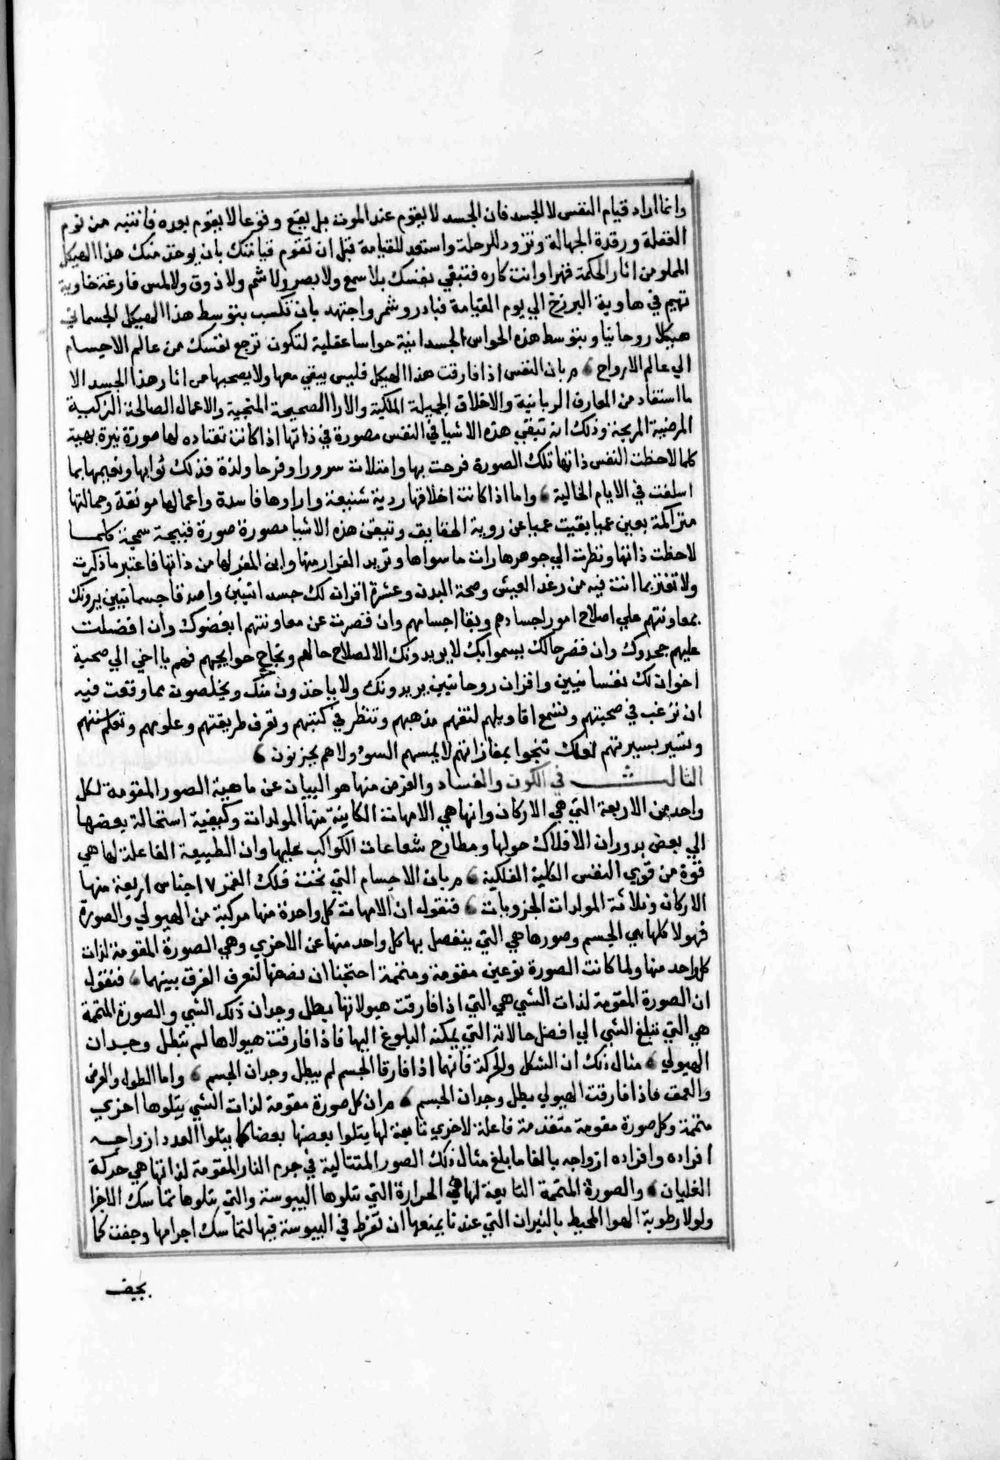 وانما اراد قيام النفس لا الجسد فان الجسد لا يقوم عند الموت بل يقع وقوعا لا يقوم بعده فانتبه من نوم
الغفلة ورقدة الجهالة وتزود للرحلة واستعد للقيامة قبل ان تقوم قيامتك بان يوخذ منك هذا الهيكل
المملو من اثار الحكمة قهرا وانت كاره فتبقي نفسك بلا سمع ولا بصر ولا شم ولا ذوق ولا لمس فارغة خاوية
تهيم في هاوية البرزخ الي يوم القيامة فبادر وشمر واجتهد بان تكسب بتوسط هذا الهيكل الجسماني
هيكلا روحانيا وبتوسط هذه الحواس الجسدانية حواسا عقلية لتكون ترجع نفسك من عالم الاجسام
الي عالم الارواح مر بان النفس اذا فارقت هذا الهيكل فليس يبقي معها ولا يصحبها من اثار هذا الجسد الا
ما استفاد من المعارف الربانية والاخلاق الجميلة الملكية والارا الصحيحة المنجية والاعمال الصالحة الزكية
المرضية المربحة وذلك انه تبقي هذه الاشيا في النفس مصورة في ذاتها اذا كانت تعتاده لها صورة نيرة بهية
كلما لاحظت النفس ذاتها تلك الصورة فرحت بها وامتلات سرورا وفرحا ولذة فذلك ثوابها ونعيمها بما
اسلفت في الايام الخالية واما اذا كانت اخلاقها ردية شنيعة وارارها فاسدة واعمالها موثقة وجهالتها
متراكمة بعين عميا بقيت عميا عن روية الحقايق وتبقي هذه الاشيا مصورة صورة قبيحة سمجة كلما
لاحظت ذاتها ونظرت الي جوهرها رات ما سواها وتريد الفرار منها واين المفر لها من ذاتها فاعتبر ما ذكرت
ولا تغتر بما انت فيه من رغد العيش وصحة البدن وعشرة اقران لك جسدانيين واصدقا جسمانيين يرونك
بمعاونتهم علي اصلاح امور اجسادهم وبقا اجسامهم وان قصرت عن معاونتهم ابغضوك وان افضلت
عليهم جحدوك وان قصر حالك يسموا بك لا يريدونك الا لصلاح حالهم ونجاح حوايجهم فهم يا اخي الي صحبة
اخوان لك نفسانيين واقران روحانيين يريدونك ولا ياخذون منك ويخلصون مما وقعت فيه
ان ترغب في صحبتهم وتسمع اقاويلهم لتفهم مذهبهم وتنظر في كتبهم وتعرف طريقتهم وعلومهم وتعلم سننهم
وتسير بسيرتهم لعلك تنجوا بمفازاتهم لا يمسهم السوء ولا هم يحزنون
الثالث في الكون والفساد والغرض منها هو البيان عن ماهية الصور المقومة لكل
واحد من الاربعة التي هي الاركان وانها هي الامهات الكاينة منها المولدات وكيفية استحالة بعضها
الي بعض بدوران الافلاك حولها ومطارح شعاعات الكواكب عليها وان الطبيعة الفاعلة لها هي
قوة من قوي النفس الكلية الفلكية مر بان الاجسام التي تحت فلك القمر ٧ اجناس اربعة منها
الاركان وثلاثة المولدات الجزويات فنقول ان الامهات كل واحدة منها مركبة من الهيولي والصورة
فهولا كلها هي الجسم وصورها هي التي ينفصل بها كل واحد منها عن الاخري وهي الصورة المقومة لذات
كل واحد منها ولما كانت الصورة نوعين مقومة ومتممة احتجنا ان نصفها لنعرف الفرق بينهما فنقول
ان الصورة المقومة لذات الشي هي التي اذا فارقت هيولاتها بطل وجدان ذلك الشي والصورة المتممة
هي التي تبلغ الشي الي افضل حالاته التي يمكنه البلوغ اليها فاذا فارقت هيولاها لم تبطل وجدان
الهيولي مثال ذلك ان الشكل والحركة فانهما اذا فارقا الجسم لم يبطل وجدان الجسم واما الطول والعرض
والعمق فاذا فارقت الهيولي بطل وجدان الجسم مر ان كل صورة مقومة لذات الشي يتلوها اخري
متممة وكل صورة مقومة متقدمة فاعلة لاخري تابعة لها يتلوا بعضها بعضا كما يتلوا العدد ازواجه
افراده وافراده ازواجه بالغا ما بلغ مثال ذلك الصور المتتالية في جرم النار المقومة لذاتها هي حركة
الغليان والصورة المتممة التابعة لها هي الحرارة التي تتلوها اليبوسة والتي تتلوها تماسك الاجزا
ولولا رطوبة الهوا المحيط بالنيران التي عندنا يمنعها ان تفرط في اليبوسة فيها لتماسك اجرامها وجفت كما
يجيف